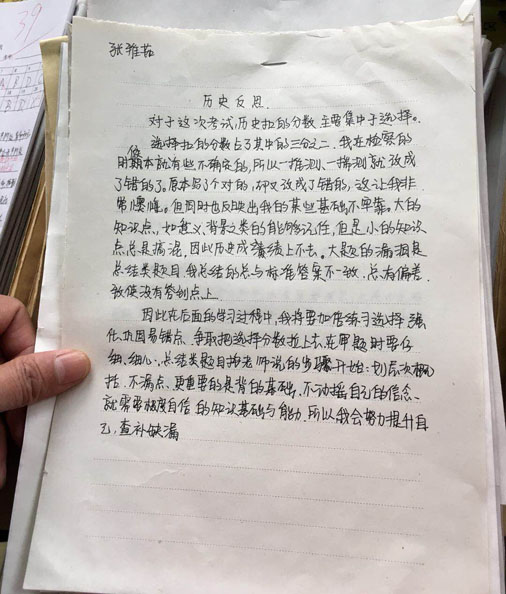 39
张雅茹
历史反思.
对于这次考试,历史拉的分数主要集中于选择。
选择拉的分数占了其中的三分之二，我在检察的
时候本就有些不确定的,所以一推测、一揣测就改成
了错的了。原本写个对的,却又改成了错的,这让我非
常懊悔。但同时也反映出我的某些基础不牢靠。大的
知识点,如意义、背景之类的能够记住,但是小的知识
点总是搞混,因此历史成绩上不去。大题的漏洞是
总结类题目,我总结的总与标准答案不一致,总有偏差
致使没有答到点上.
因此在后面的学习过程中,我将要加倍练习选择,强
化、巩固易错点、争取把选择分数拉上去,在审题时要仔
细、细心、总结类题目按老师说的步骤开始:划层次,概
括.不漏点、更重要的是背的基础,不动摇自己的信念、
就需要极度自信的知识基础与能力.所以我会努力提升自
己,查补缺漏